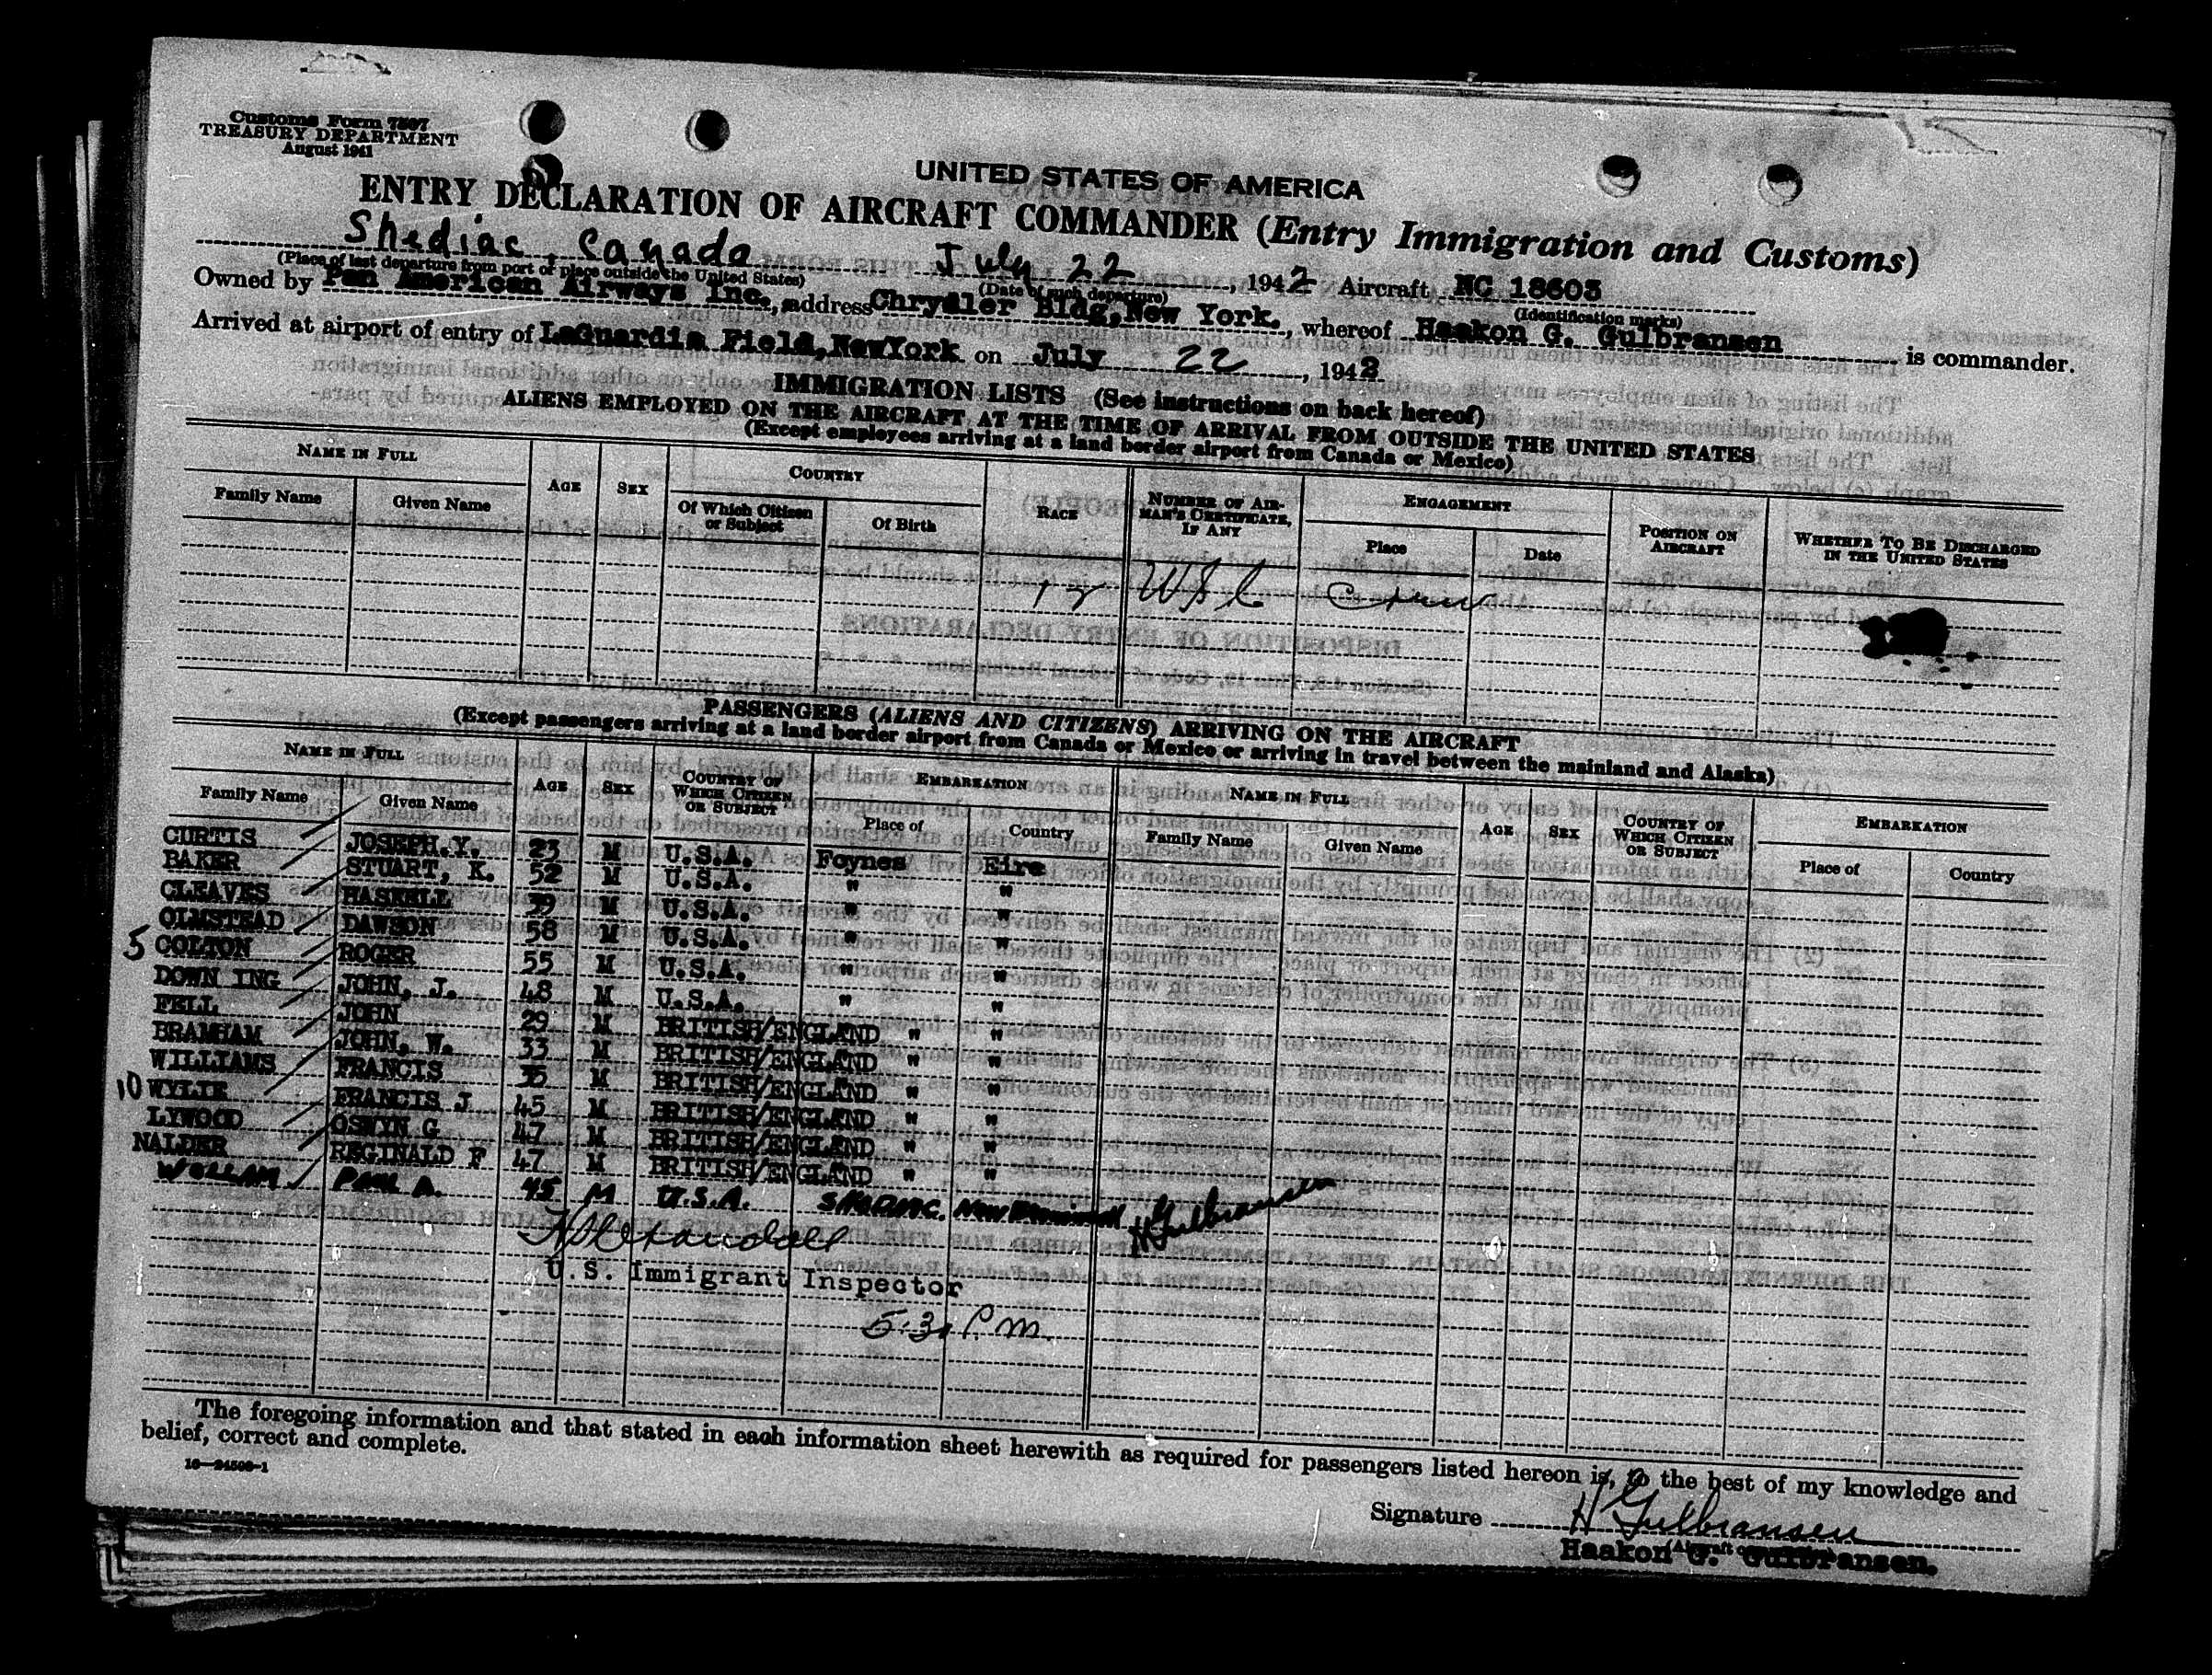 Customs Form 7507
TREASURY DEPARTMENT
August 1941
UNITED STATES OF AMERICA
ENTRY DECLARATION OF AIRCRAFT COMMANDER (Entry Immigration and Customs)
Shediac, Canada July 22, 1942 Aircraft NC 18603
(Place of last departure from port or place outside the United States) (Date of such departure) (Identification marks)
Owned by Pan American Airways Inc., address Chrysler Bldg, New York., whereof Haakon G. Gulbransen is commander.
Arrived at airport of entry of LaGuardia Field, NewYork on July 22, 1942
IMMIGRATION LISTS (See instructions on back hereof)
ALIENS EMPLOYED ON THE AIRCRAFT AT THE TIME OF ARRIVAL FROM OUTSIDE THE UNITED STATES
(Except employees arriving at a land border airport from Canada or Mexico)
NAME IN FULL AGE SEX COUNTRY RACE NUMBER OF AIRMAN'S CERTIFICATE, IF ANY ENGAGEMENT POSITION ON AIRCRAFT WHETHER TO BE DISCHARGED IN THE UNITED STATES
Family Name Given Name Of Which Citizen or Subject Of Birth Place Date
12 Crew
PASSENGERS (ALIENS AND CITIZENS) ARRIVING ON THE AIRCRAFT
(Except passengers arriving at a land border airport from Canada or Mexico or arriving in travel between the mainland and Alaska)
NAME IN FULL AGE SEX COUNTRY OF WHICH CITIZEN OR SUBJECT EMBARKATION NAME IN FULL AGE SEX COUNTRY OF WHICH CITIZEN OR SUBJECT EMBARKATION
Family Name Given Name Place of Country Family Name Given Name Place of Country
CURTIS JOSEPH.Y. 23 M U.S.A. Foynes Eire
BAKER STUART, K. 52 M U.S.A. " "
CLEAVES HASKELL 39 M U.S.A. " "
OLMSTEAD DAWSON 58 M U.S.A. " "
5 COLTON ROGER 55 M U.S.A. " "
DOWN ING JOHN, J. 48 M U.S.A. " "
FELL JOHN 29 M BRITISH/ENGLAND " "
BRAMHAM JOHN, W. 33 M BRITISH/ENGLAND " "
WILLIAMS FRANCIS 35 M BRITISH/ENGLAND " "
10 WYLIE FRANCIS J 45 M BRITISH/ENGLAND " "
LYWOOD OSWYN G 47 M BRITISH/ENGLAND " "
NALDER REGINALD F 47 M BRITISH/ENGLAND " "
WOLLAM PAUL A. 45 M U.S.A. SHEDIAC. New Brunswick H Gulbransen
U.S. Immigrant Inspector
5:30 P.m.
The foregoing information and that stated in each information sheet herewith as required for passengers listed hereon is, to the best of my knowledge and
belief, correct and complete.
16—24500-1
Signature H Gulbransen
Haakon G. Gulbransen.